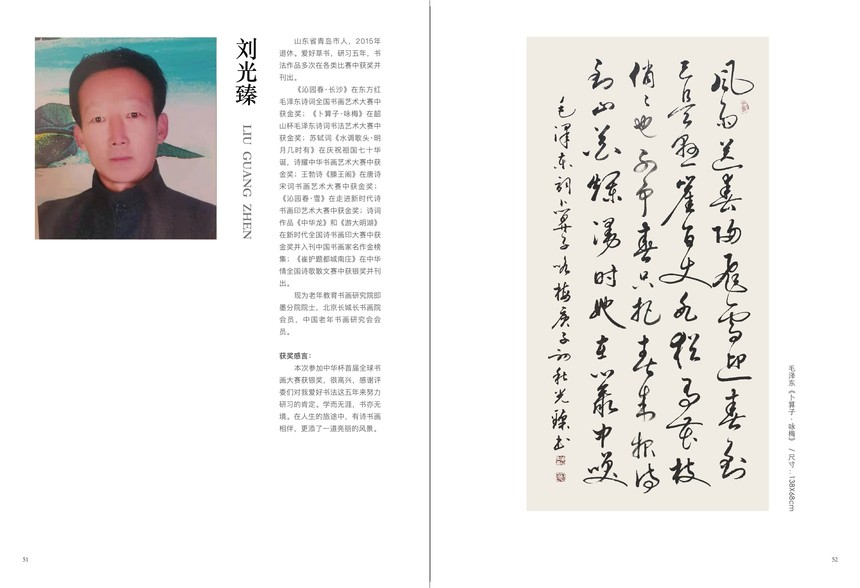 刘光臻
LIU GUANG ZHEN
山东省青岛市人，2015年
退休。爱好草书，研习五年，书
法作品多次在各类比赛中获奖并
刊出。
《沁园春·长沙》在东方红
毛泽东诗词全国书画艺术大赛中
获金奖；《卜算子·咏梅》在韶
山杯毛泽东诗词书法艺术大赛中
获金奖；苏轼词《水调歌头·明
月几时有》在庆祝祖国七十华
诞，诗耀中华书画艺术大赛中获
金奖；王勃诗《滕王阁》在唐诗
宋词书画艺术大赛中获金奖；
《沁园春·雪》在走进新时代诗
书画印艺术大赛中获金奖；诗词
作品《中华龙》和《游大明湖》
在新时代全国诗书画印大赛中获
金奖并入刊中国书画家名作金榜
集；《崔护题都城南庄》在中华
情全国诗歌散文赛中获银奖并刊
出。
现为老年教育书画研究院即
墨分院院士，北京长城长书画院
会员，中国老年书画研究会会
员。
获奖感言：
本次参加中华杯首届全球书
画大赛获银奖，很高兴，感谢评
委们对我爱好书法这五年来努力
研习的肯定。学而无涯，书亦无
境。在人生的旅途中，有诗书画
相伴，更添了一道亮丽的风景。
51
风雨送春归飞雪迎春到
已是悬崖百丈冰犹有花枝
俏俏也不争春只把春来报待
到山花烂漫时她在丛中笑
毛泽东词卜算子咏梅庚子初秋光臻书
毛泽东《卜算子·咏梅》 / 尺寸：138X68cm
52